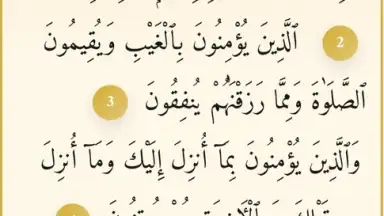 2 ٱلَّذِينَ يُؤْمِنُونَ بِٱلْغَيْبِ وَيُقِيمُونَ
ٱلصَّلَوٰةَ وَمِمَّا رَزَقْنَٰهُمْ يُنفِقُونَ 3
وَٱلَّذِينَ يُؤْمِنُونَ بِمَآ أُنزِلَ إِلَيْكَ وَمَآ أُنزِلَ